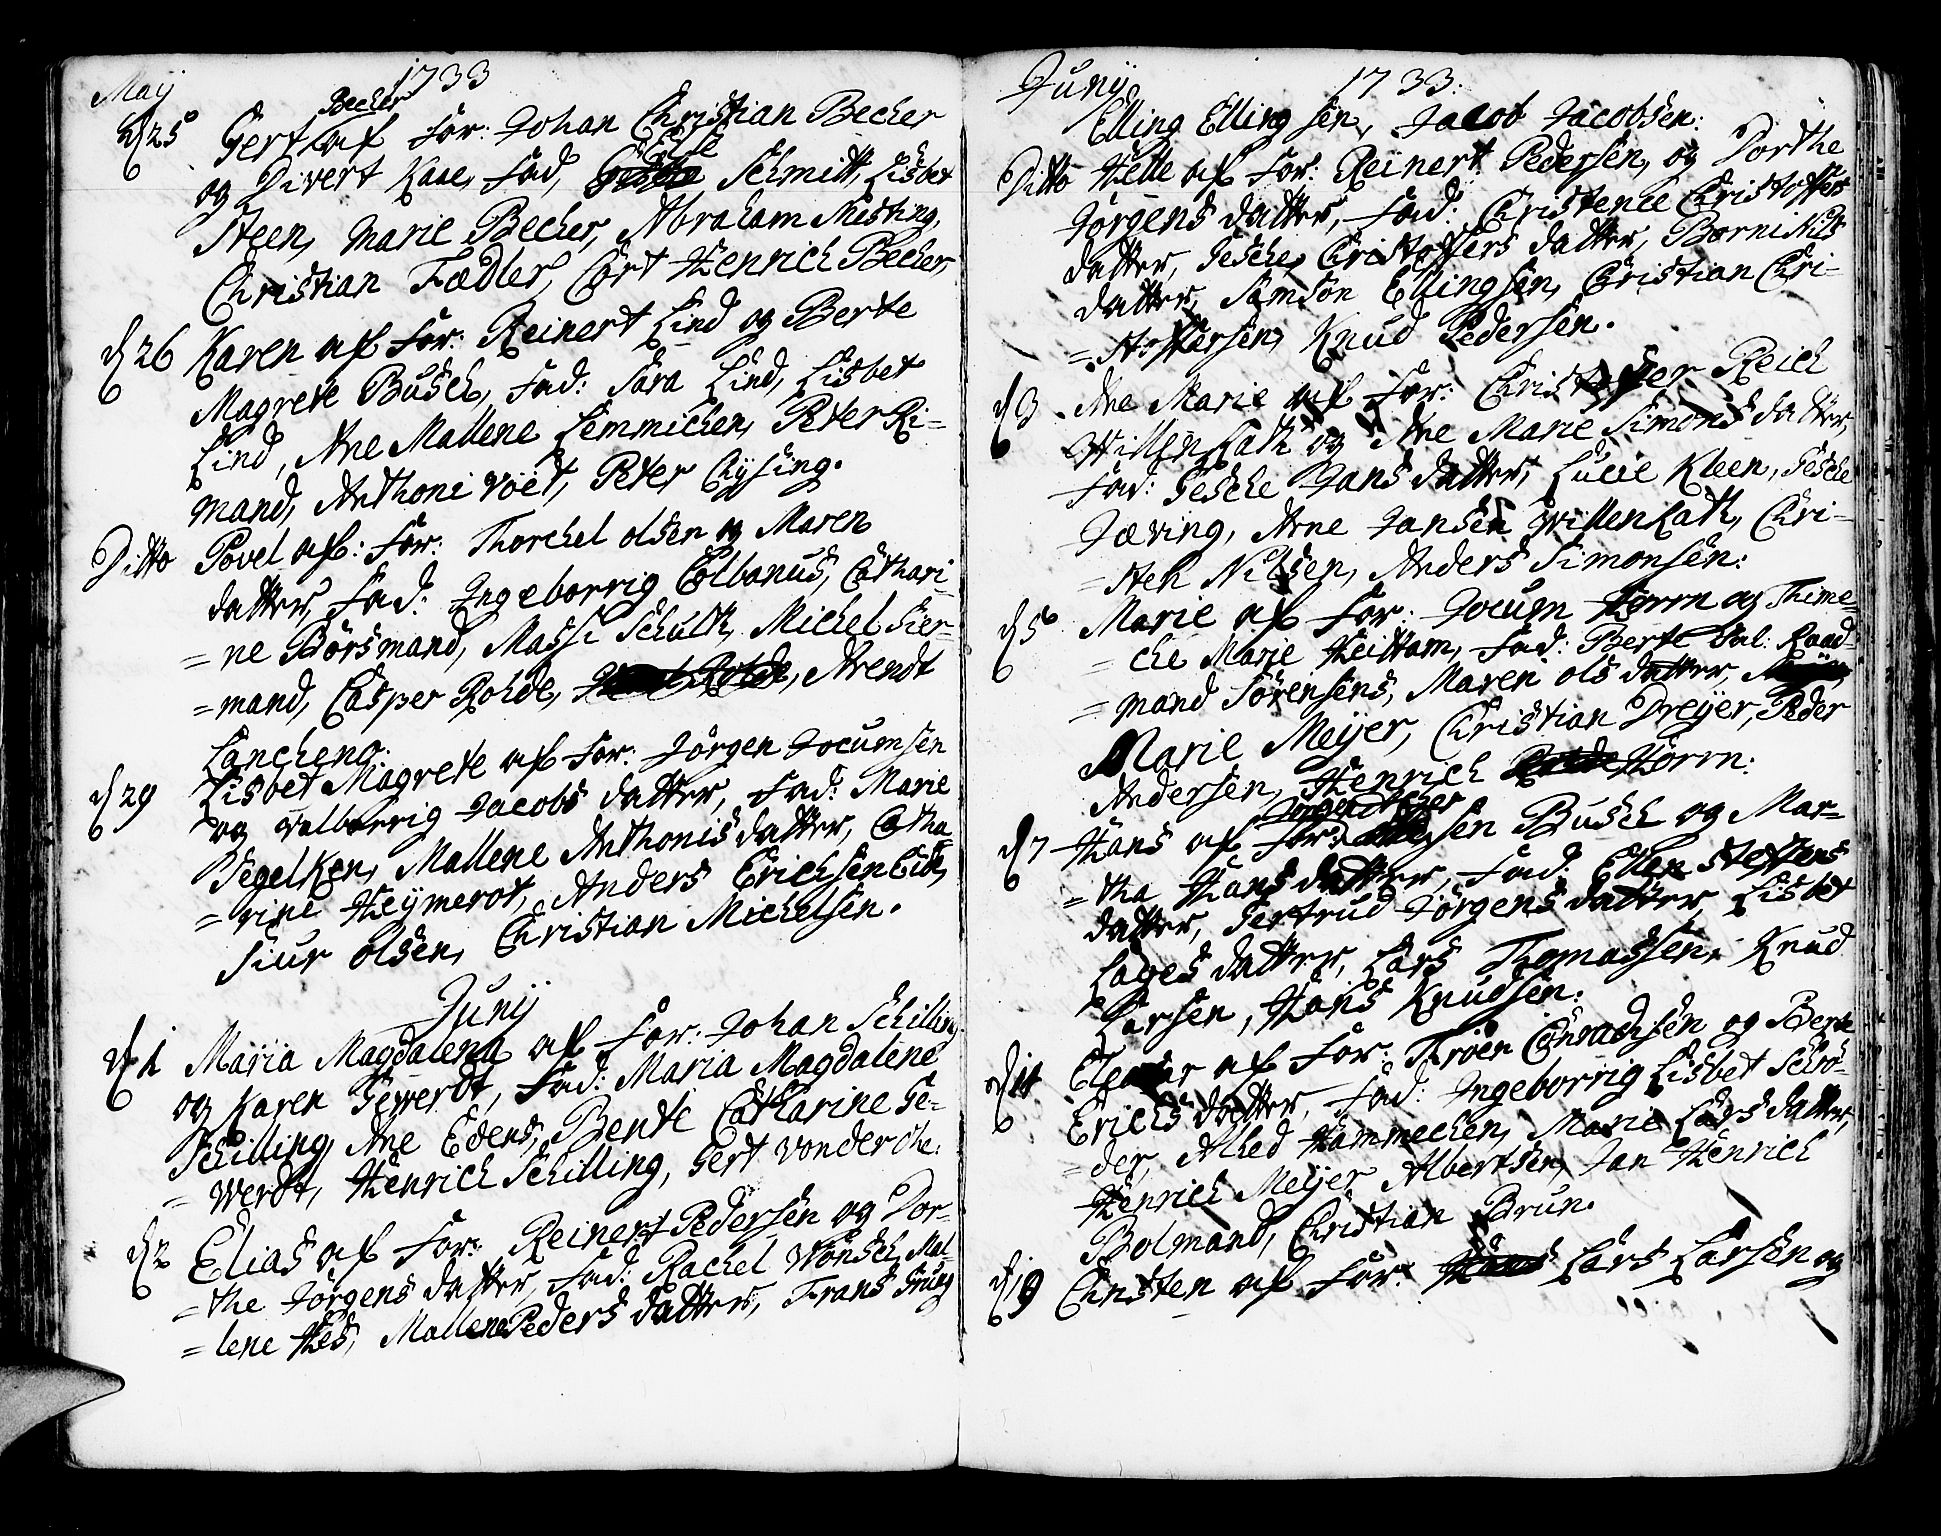 Maij 1733
d 25 Gert Becher af For: Johan Christian Becher
og Divert Kaae, Fad, Else Schmitt, Lisbet
Steen, Marie Becher, Abraham Mesting,
Christian Fædler, Cort Henrich Becher,
d 26 Karen af For: Reinert Lind og Berte
Magrete Busch, Fad: Sara Lind, Lisbet
Lind, Ane Mallene Lemmichen, Peter Ri-
mand, Anthoni Voet, Peter Chÿsing.
Ditto Povel af: For: Thorchel Olsen og Maren
datter, Fad: Ingeborrig Colbanus, Cathari-
=ne Börsmand, Massi Schult, Michel Sier-
=mand, Casper Rohde, Arendt
Lancheno:
d 29 Lisbet Magrete af For: Jörgen Jocumsen
og Valborrig Jacobs datter, Fad: Marie
Segelken, Mallene Anthonis datter, Catha
=rine Heÿmerot, Anders Erichsen Eide,
Siur Olsen, Christian Michelsen.
Junij
d 1 Maria Magdalena af For: Johan Schilling
og Karen Gewerdt, Fad: Maria Magdalene
Schilling, Ane Edens, Bente Catharine Ge-
=werdt, Henrich Schilling, Gert Vonder Ohe.
d 2 Elias af For: Reinert Pedersen og Dor-
=the Jörgens datter, Fad: Rachel Wönsch, Mal
=lene Hes, Mallene Peders datter, Frans Grueg
Junij 1733.
Elling Elling sen, Jacob Jacobsen:
Ditto Helle af For: Reinert Pedersen, og Dorthe
Jörgens datter, Fad: Christence Christoffers
datter, Gesche Christoffers datter, Borni Nils
datter, Samson Ellingsen, Christian Chri-
=stoffersen, Knud Pedersen.
d 3 Ane Marie af For: Christoffer Reich
Willen Lath og Ane Marie Simons datter,
Fad: Gesche Hans datter, Lucie Kleen, Gesche
Jæving, Arne Jansen Willenkath, Chri-
=sten Nilsen, Anders Simonsen:
d 5 Marie af For: Jocum Horm og Thime-
=che Marie Heittam, Fad: Berte Sal: Raad-
=mand Sörensens, Maren Ols datter,
Marie Meÿer, Christian Dreÿer, Peder
Andersen, Henrich Horm:
d 7 Hans af For: Busch og Mar-
=tha Hans datter, Fad: Ellen Steffens
datter, Gertrud Jörgens datter, Lisbet
Lages datter, Lars Thomassen, Knud
Larsen, Hans Knudsen:
d 11 af For: Thröer Conradsen og Berte
Erichs datter, Fad: Ingeborrig Lisbet Schrö-
=der, Alhed Hammechen, Marie Lars datter,
Henrich Meÿer Albertsen, Jan Henrich
Bolmand, Christian Brun.
d 19 Christen af For: Lars Larsen og